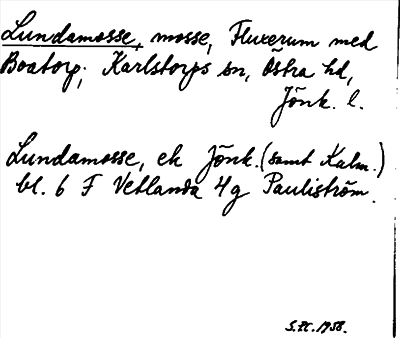 Lundamosse, mosse, Fluxerum med
Boatorp; Karlstorps sn, Östra hd,
Jönk. l.
Lundamosse, ek Jönk. (samt Kalm.)
bl. 6 F Vetlanda 4g Pauliström.
1958.